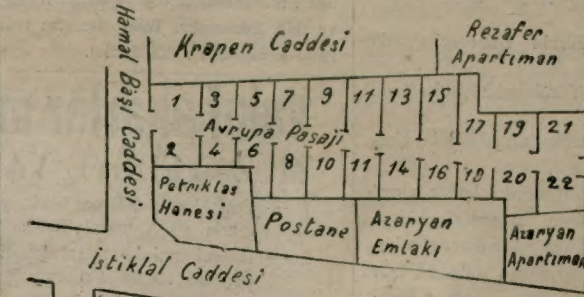 Hamal Başı Caddesi
Krapen Caddesi
Rezafer
Apartıman
1 3 5 7 9 11 13 15 17 19 21
Avrupa Pasajı
2 4 6 8 10 11 14 16 18 20 22
Patriklas
Hanesi
Postane
Azaryan
Emlakı
Azaryan
Apartıman
İstiklâl Caddesi